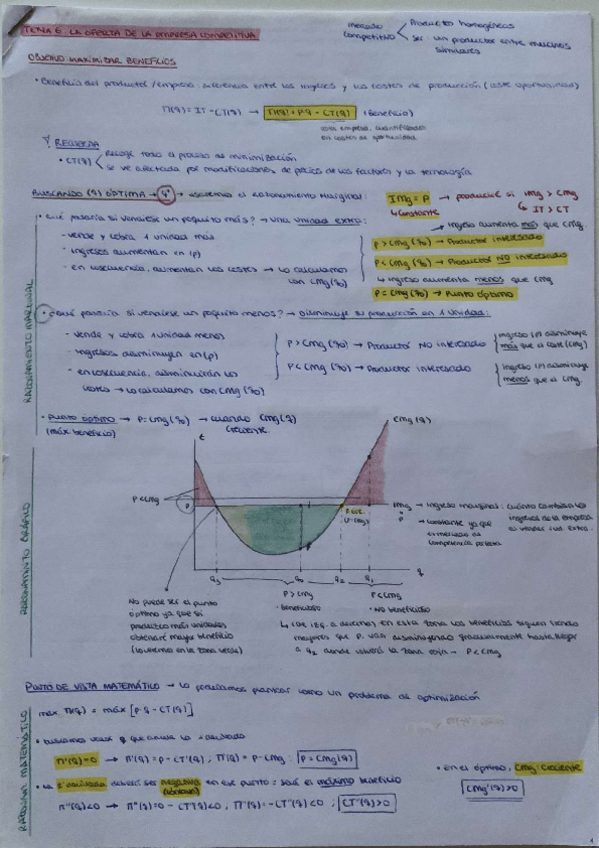 TEMA 6: LA OFERTA DE LA EMPRESA COMPETITIVA
mercado competitivo
Productos homogéneos
Ser un productor entre muchos similares
OBJETIVO MAXIMIZAR BENEFICIOS
• Beneficio del productor/empresa: diferencia entre los ingresos y los costes de producción (coste oportunidad)
π(q) = IT - CT(q) → π(q) = P·q - CT(q) (Beneficio)
RECUERDA
• CT(q)
Recoge todo el proceso de minimización
se ve afectada por modificaciones de precios de los factores y la tecnología
BUSCANDO (q) ÓPTIMA → q* → usaremos el razonamiento marginal:
IMg = P → produciré si IMg > CMg
↳ constante
↳ IT > CT
RAZONAMIENTO MARGINAL
• ¿Qué pasaría si vendiese un poquito más? → una unidad extra:
- vende y cobra 1 unidad más
- ingresos aumentan en (p)
- en consecuencia, aumentan los costes → lo calculamos con CMg(q₀)
ingreso aumenta más que CMg
P > CMg(q₀) → Productor interesado
P < CMg(q₀) → Productor NO interesado
↳ ingreso aumenta menos que CMg
P = CMg(q₀) → Punto óptimo
• ¿Qué pasaría si vendiese un poquito menos? → disminuye su producción en 1 unidad:
- vende y cobra 1 unidad menos
- Ingresos disminuyen en (p)
- en consecuencia, disminuirán los costes → lo calculamos con CMg(q₀)
P > CMg(q₀) → Productor NO interesado
ingreso (P) disminuye más que el coste (CMg)
P < CMg(q₀) → Productor interesado
ingreso (P) disminuye menos que el CMg
• PUNTO ÓPTIMO → P = CMg(q₀) → cuando CMg(q) creciente
(máx beneficio)
RAZONAMIENTO GRÁFICO
€
CMg(q)
P < CMg
P
IMg → Ingreso marginal: cuánto cambian los ingresos de la empresa si vende 1 ud. extra
P
→ constante ya que el mercado de competencia perfecta
q₃
q₀
q₂
q₁
q
No puede ser el punto óptimo ya que si produzco más unidades obtendré mayor beneficio
P > CMg
- Beneficioso
P < CMg
- No beneficioso
↳ (de izq. a derecha) en esta zona los beneficios siguen siendo mayores que P. Van disminuyendo gradualmente hasta llegar a q₂ donde volverá la zona roja → P < CMg
PUNTO DE VISTA MATEMÁTICO → Lo podríamos plantear como un problema de optimización
máx π(q) = máx [P·q - CT(q)]
RAZONAM. MATEMÁTICO
• buscamos valor q que anule la 1ª derivada
π'(q)=0 → π'(q) = P - CT'(q) ; π'(q) = P - CMg : P = CMg(q)
• La 2ª derivada deberá ser negativa en ese punto = será el máximo beneficio
π''(q)<0 → π''(q) = 0 - CT''(q) < 0 ; π''(q) = -CT''(q) < 0 ; CT''(q) > 0
• en el óptimo, CMg creciente
CMg'(q) > 0
1